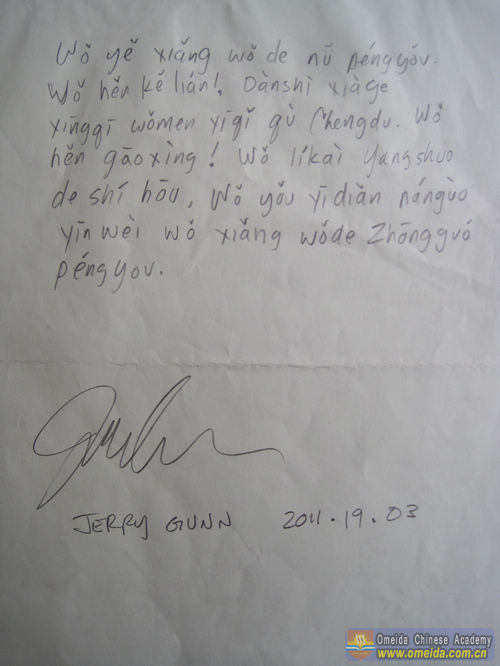 Wǒ yě xiǎng wǒ de nǚ péngyǒu.
Wǒ hěn kě lián! Dànshì xiàge
xīngqī wǒmen yīqǐ qù Chengdu. Wǒ
hěn gāoxìng! Wǒ líkāi Yangshuo
de shí hōu, Wǒ yǒu yīdiǎn nánguò
yīn wèi wǒ xiǎng wǒde Zhōngguó
péngyou.
JERRY GUNN 2011.19.03
Omeida Chinese Academy
www.omeida.com.cn